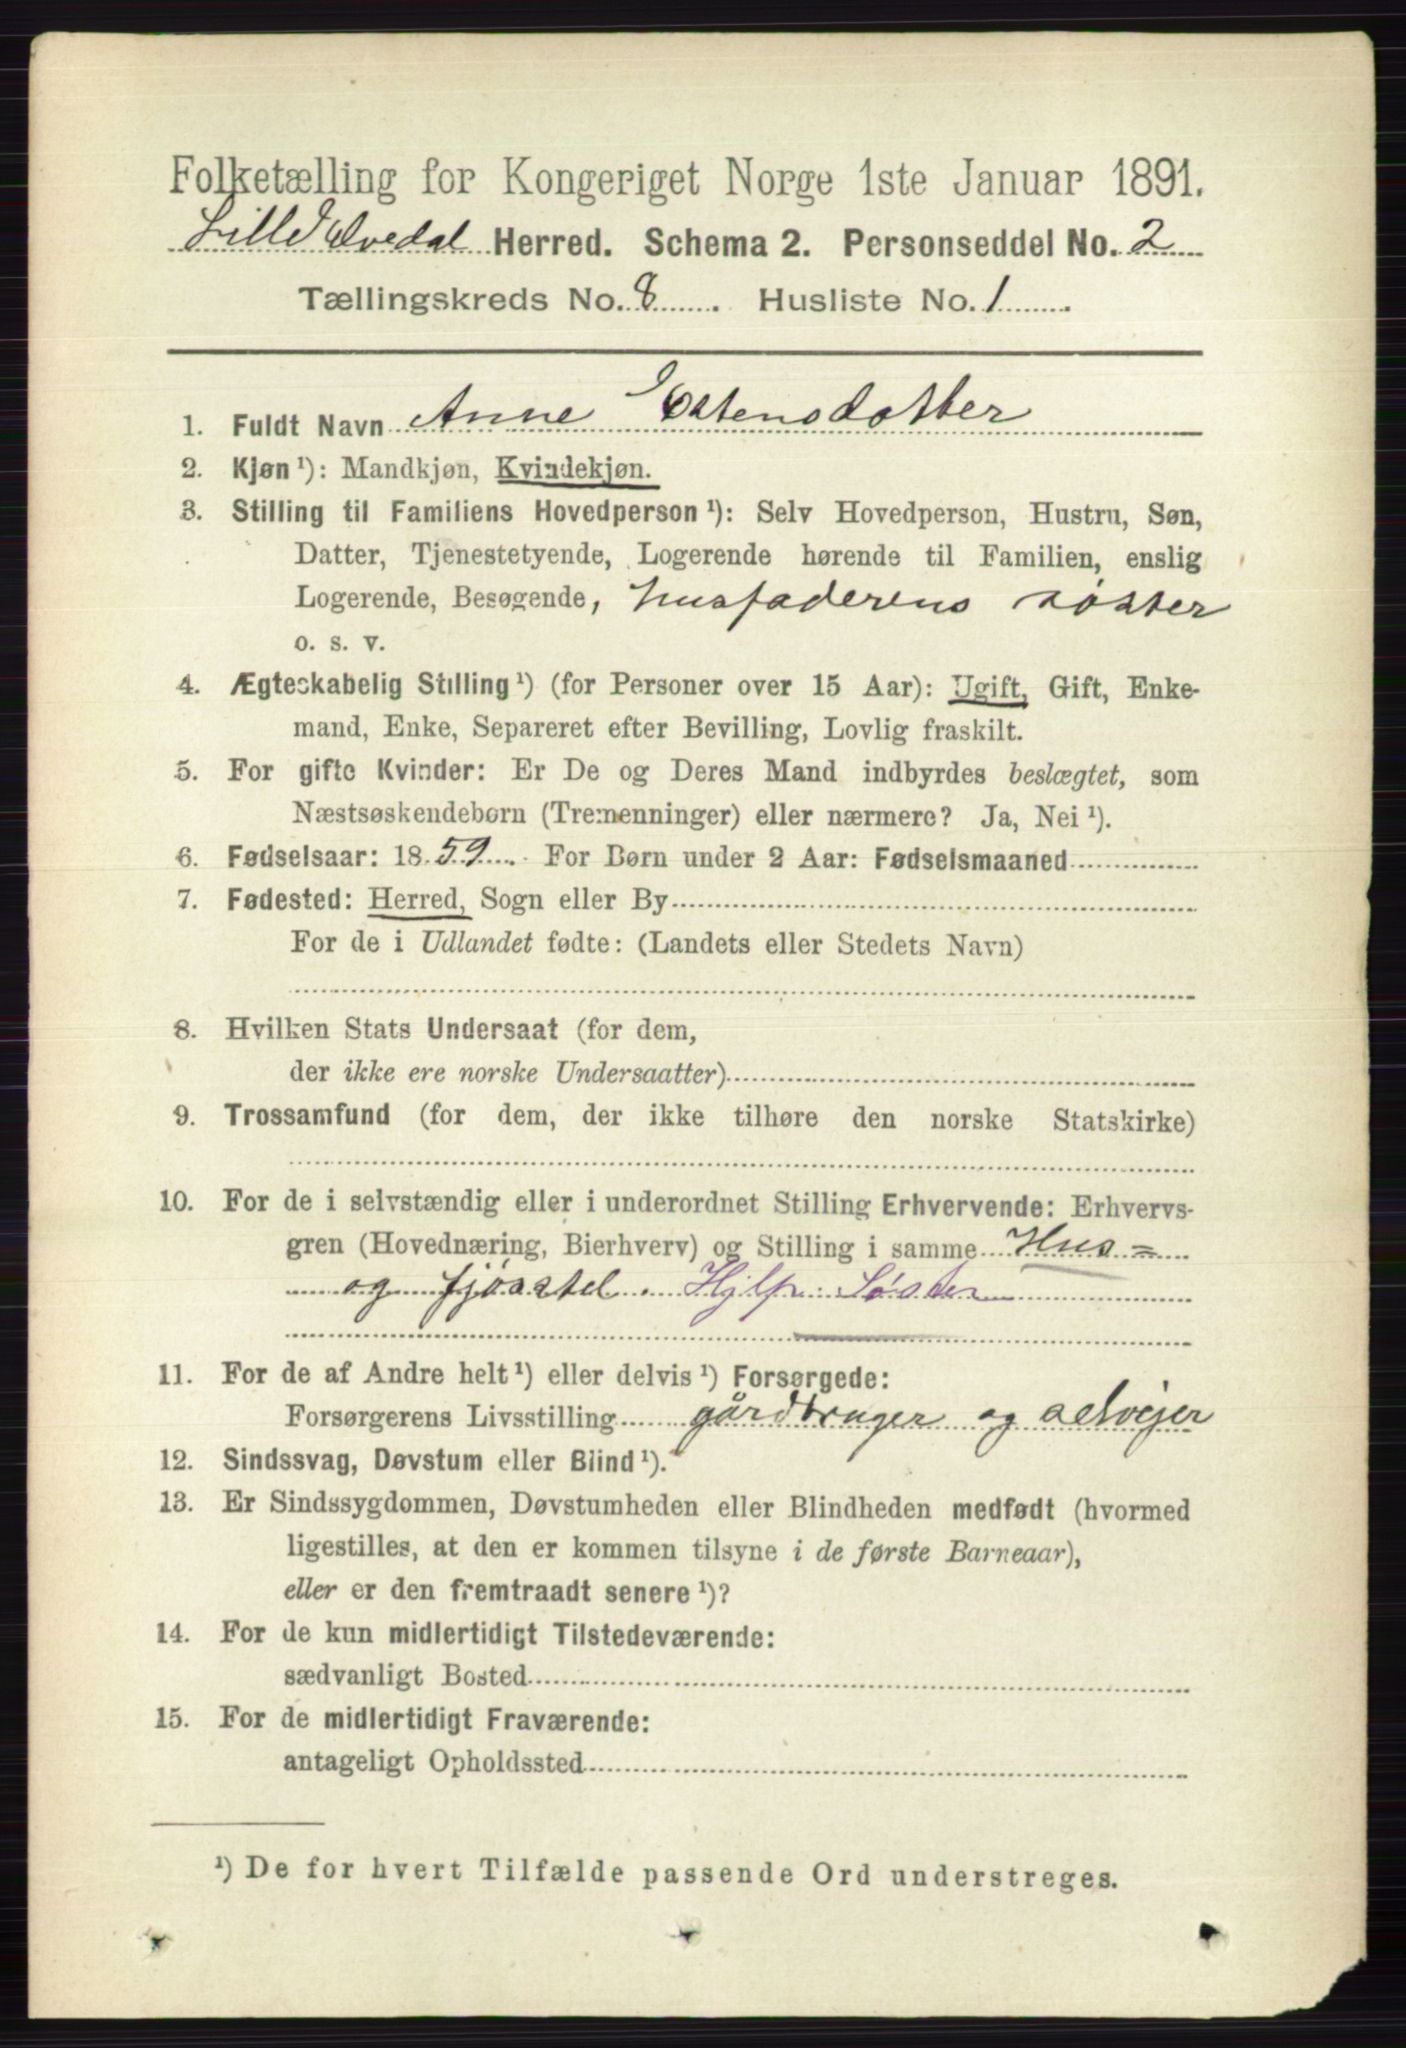 Folketælling for Kongeriget Norge 1ste Januar 1891.
Lille Elvedal Herred. Schema 2. Personseddel No. 2
Tællingskreds No. 8. Husliste No. 1.
1. Fuldt Navn Anne Estensdatter
2. Kjøn ¹): Mandkjøn, Kvindekjøn.
3. Stilling til Familiens Hovedperson ¹): Selv Hovedperson, Hustru, Søn,
Datter, Tjenestetyende, Logerende hørende til Familien, enslig
Logerende, Besøgende, husfaderens søster
o. s. v.
4. Ægteskabelig Stilling ¹) (for Personer over 15 Aar): Ugift, Gift, Enke-
mand, Enke, Separeret efter Bevilling, Lovlig fraskilt.
5. For gifte Kvinder: Er De og Deres Mand indbyrdes beslægtet, som
Næstsøskendebørn (Tremenninger) eller nærmere? Ja, Nei ¹).
6. Fødselsaar: 1859. For Børn under 2 Aar: Fødselsmaaned
7. Fødested: Herred, Sogn eller By
For de i Udlandet fødte: (Landets eller Stedets Navn)
8. Hvilken Stats Undersaat (for dem,
der ikke ere norske Undersaatter)
9. Trossamfund (for dem, der ikke tilhøre den norske Statskirke)
10. For de i selvstændig eller i underordnet Stilling Erhvervende: Erhvervs-
gren (Hovednæring, Bierhverv) og Stilling i samme Hus=
og fjøsstel. Hjlp. Søster
11. For de af Andre helt ¹) eller delvis ¹) Forsørgede:
Forsørgerens Livsstilling gårdbruger og selvejer
12. Sindssvag, Døvstum eller Blind ¹).
13. Er Sindssygdommen, Døvstumheden eller Blindheden medfødt (hvormed
ligestilles, at den er kommen tilsyne i de første Barneaar),
eller er den fremtraadt senere ¹)?
14. For de kun midlertidigt Tilstedeværende:
sædvanligt Bosted
15. For de midlertidigt Fraværende:
antageligt Opholdssted
¹) De for hvert Tilfælde passende Ord understreges.